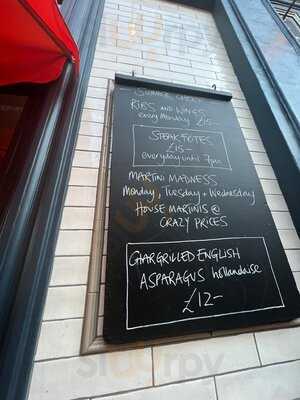 RIBS AND WINGS
every Monday £15
STEAK FRITES
£15-
everyday until 7pm
MARTINI MADNESS
Monday, Tuesday + Wednesday
HOUSE MARTINIS @
CRAZY PRICES
CHARGRILLED ENGLISH
ASPARAGUS hollandaise
£12-